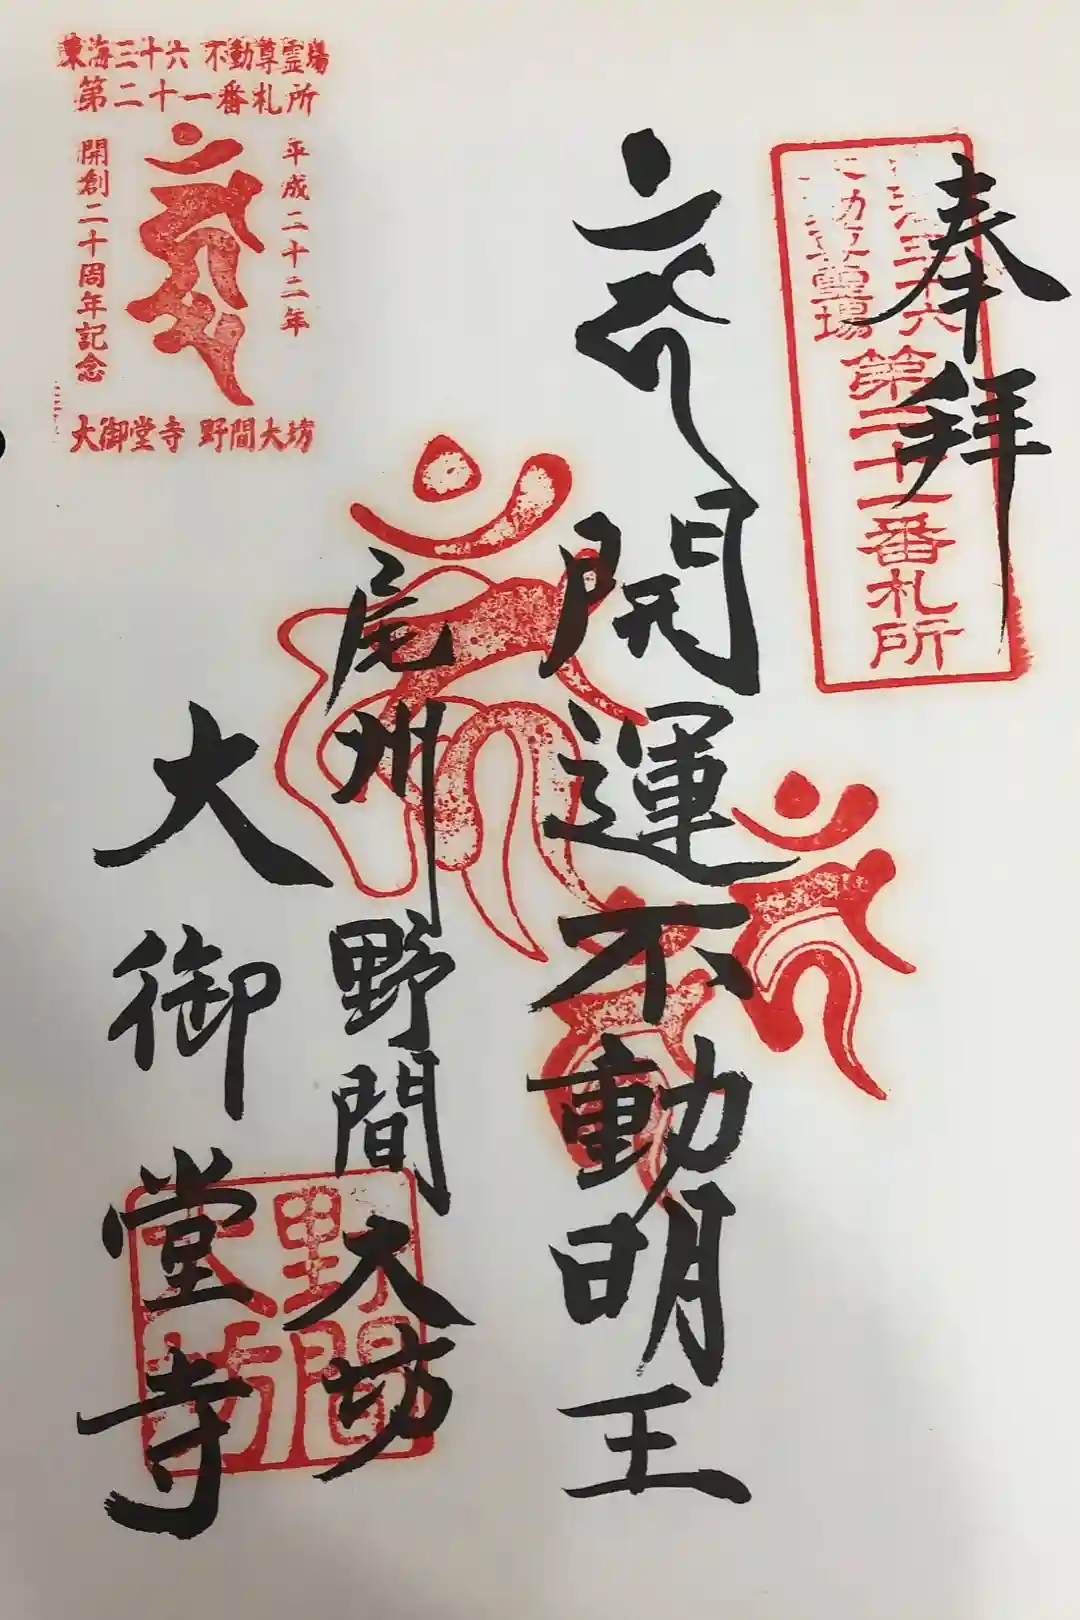 奉拝
東海三十六
不動尊霊場
第二十一番札所
開運不動明王
尾州野間大坊
大御堂寺
東海三十六不動尊霊場
第二十一番札所
平成二十二年
開創二十周年記念
大御堂寺 野間大坊
野間
大坊